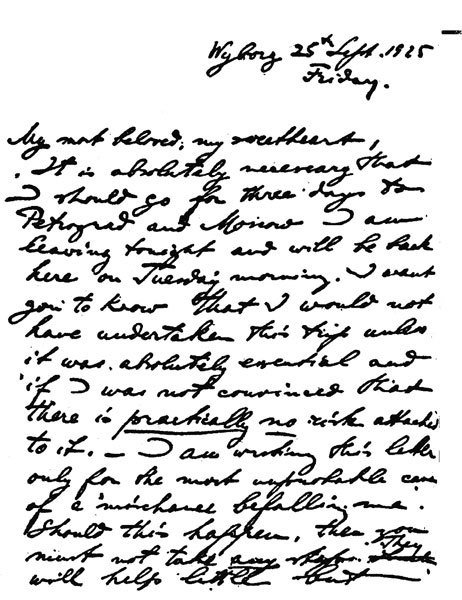 Wyborg 25th Sept. 1925
Friday.
My most beloved, my sweetheart,
It is absolutely necessary that
I should go for three days to
Petrograd and Moscow I am
leaving tonight and will be back
here on Tuesday morning. I want
you to know that I would not
have undertaken this trip unless
it was absolutely essential and
if I was not convinced that
there is practically no risk attached
to it. — I am writing this letter
only for the most improbable case
of a mischance befalling me.
Should this happen, then you
must not take any steps. They
will help little but